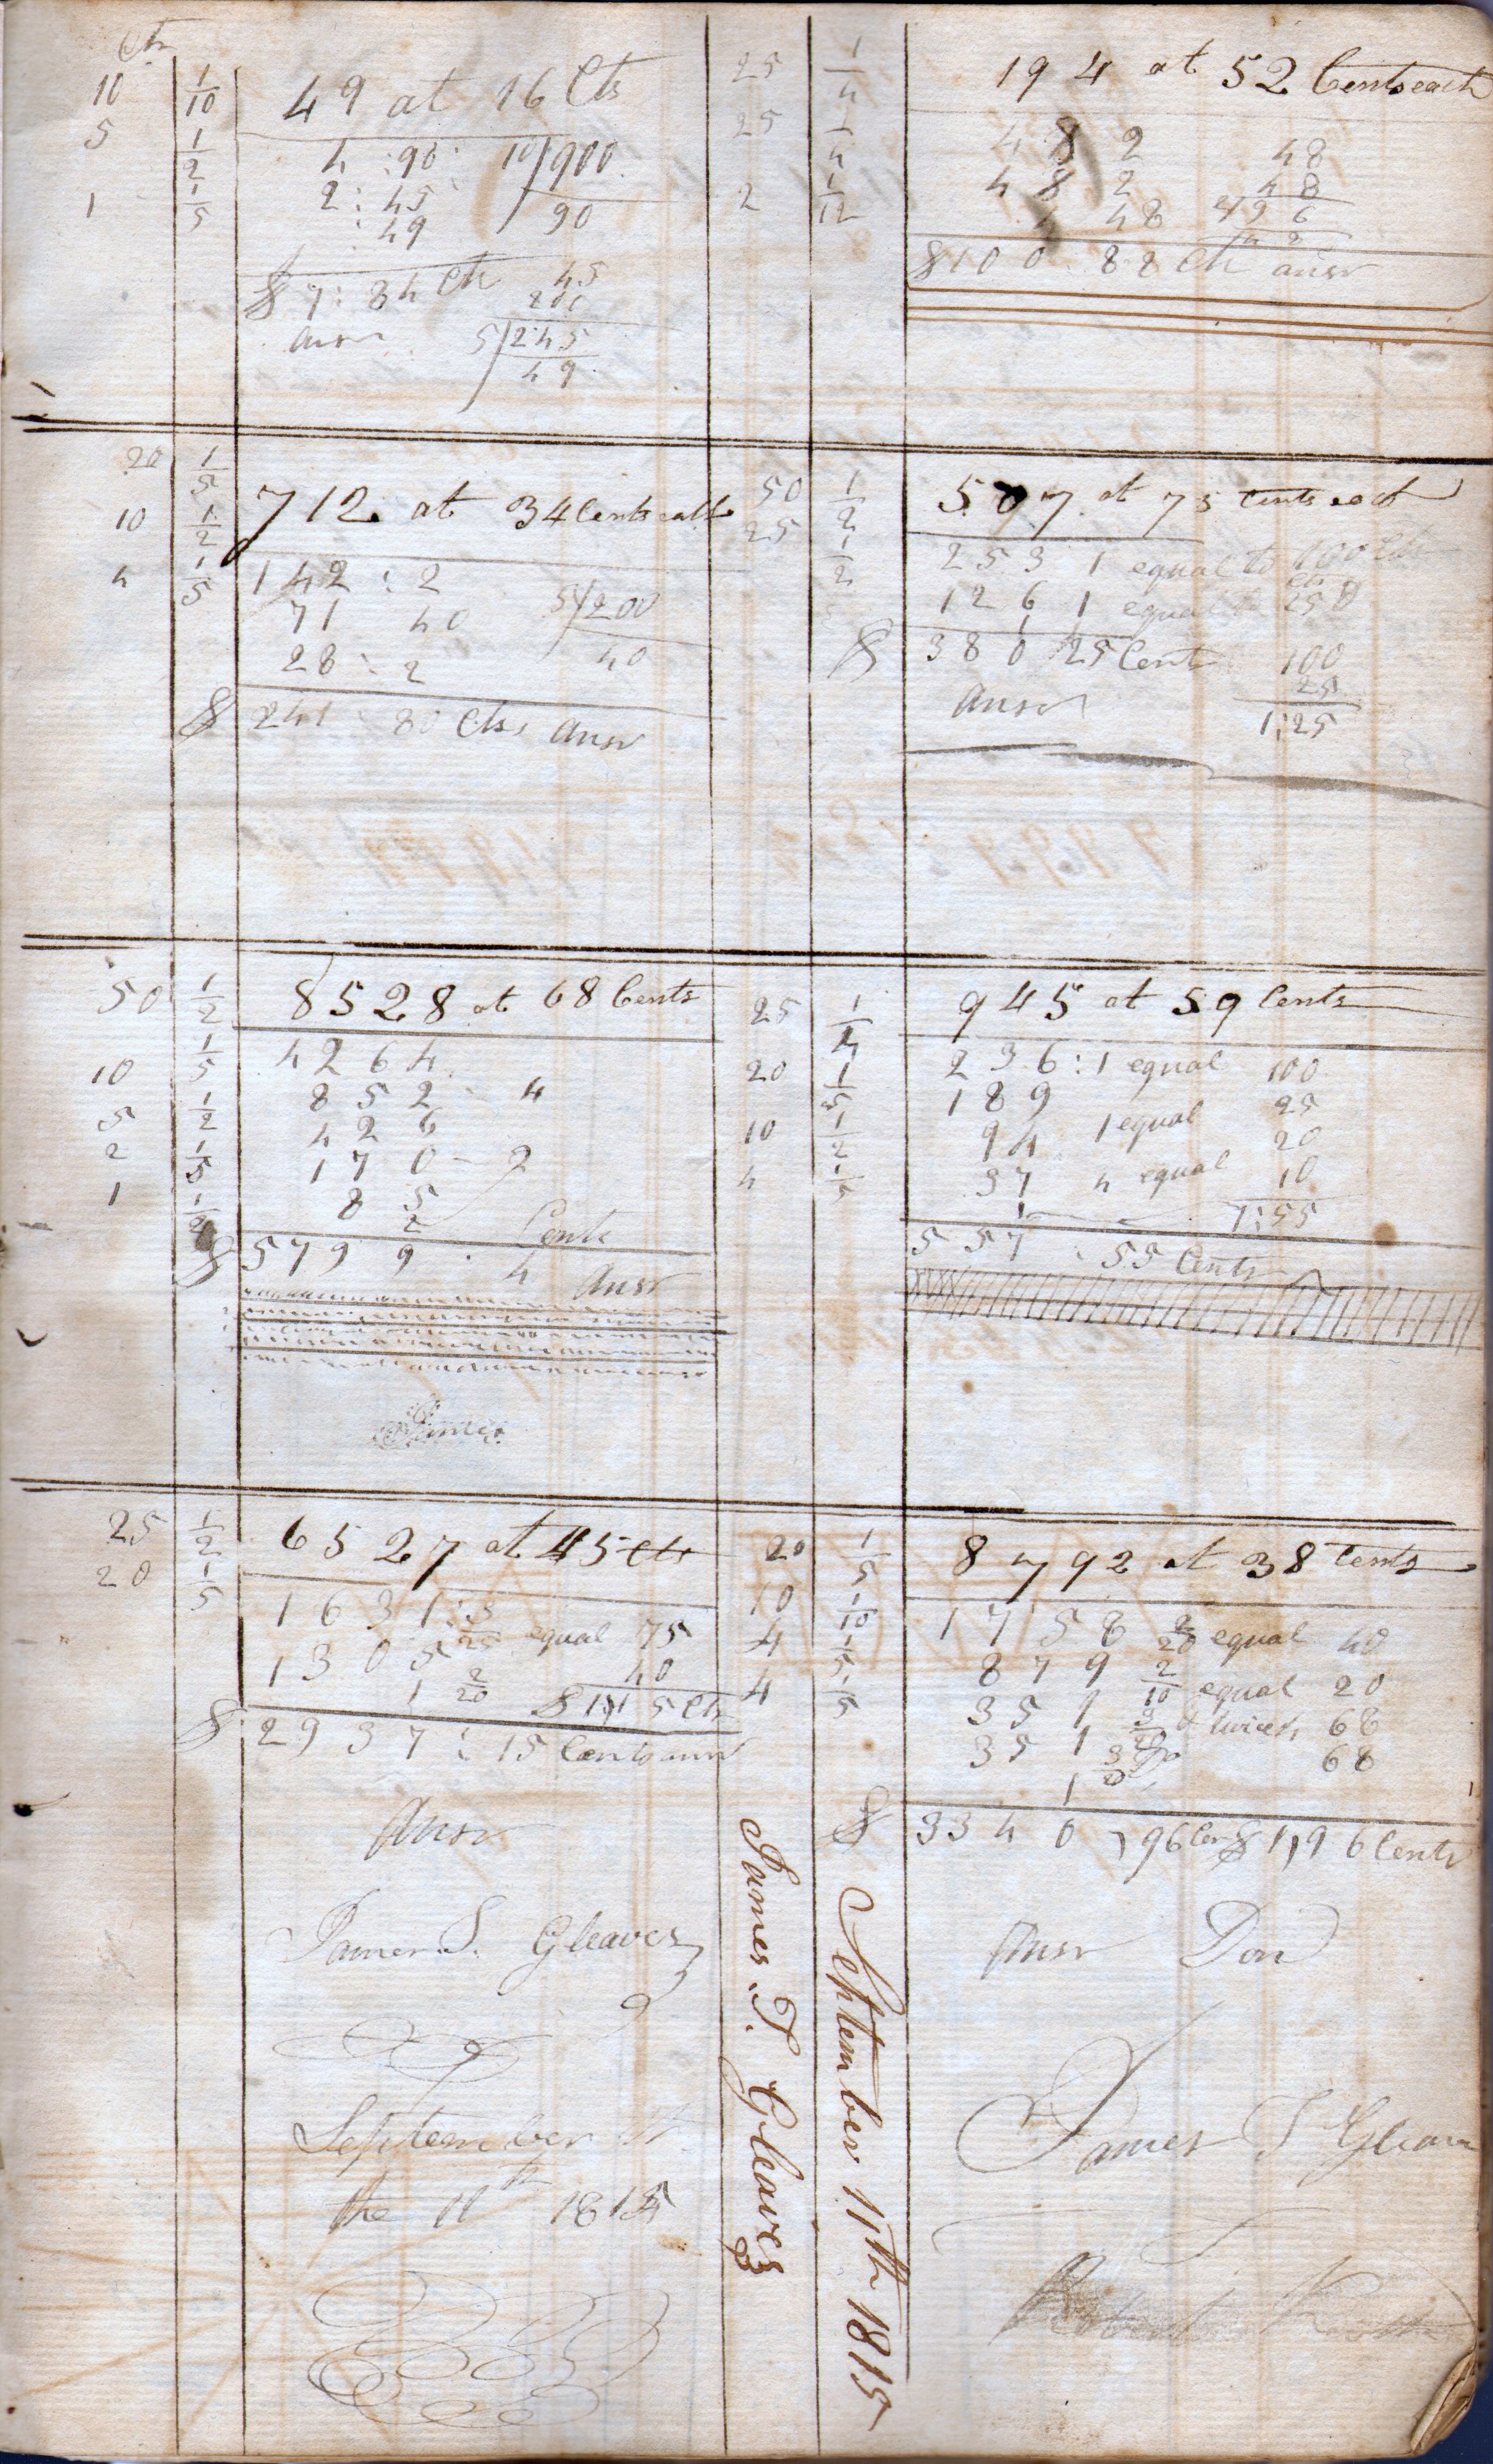 Cts
10 1/10 49 at 16 Cts
5 1/2 4 : 90 10/900
1 1/5 2 : 45 90
: 49
$ 7 : 84 Cts 45
200
Ansr 5/245
49
25 1/4 194 at 52 Cents each
25 1/4 48 2 48
2 1/12 48 2 48
4 48 96
$100 88 Cts ansr
20 1/5 712 at 34 Cents each
10 1/2 142 : 2
4 1/5 71 40 5/200
28 : 2 40
$ 241 80 Cts Ansr
50 1/2 507 at 75 Cents each
25 1/2 253 1 equal to 100 Cts
126 1 equal to 25
1
$ 380 25 Cents 100
Ansr 25
1:25
50 1/2 8528 at 68 Cents
10 1/5 4264
5 1/2 852 - 4
2 1/5 426
1 1/2 170 - 2
85
2 Cents
$ 5799 . 4 Ansr
James
25 1/4 945 at 59 Cents
20 1/5 236 : 1 equal 100
10 1/2 189 25
4 1/5 94 1 equal 20
37 4 equal 10
1 1:55
557 : 55 Cents
25 1/2 6527 at 45 Cts
20 1/5 1631 : 3/25 equal 75
1305 2/20 40
1 $1,15 Cts
$ 2937 : 15 Cents ansr
Ansr
James S. Gleaves
September
the 11th 1815
20 1/5 8792 at 38 Cents
10 1/10 1758 2/20 equal 40
4 1/5 879 2/10 equal 20
4 1/5 351 3/20 twice 68
351 3/20 68
1
$ 3340 , 96 Cen $ 1,96 Cents
Ansr Don
James T Gleave
Robert
James T. Gleaves
September 11th 1815